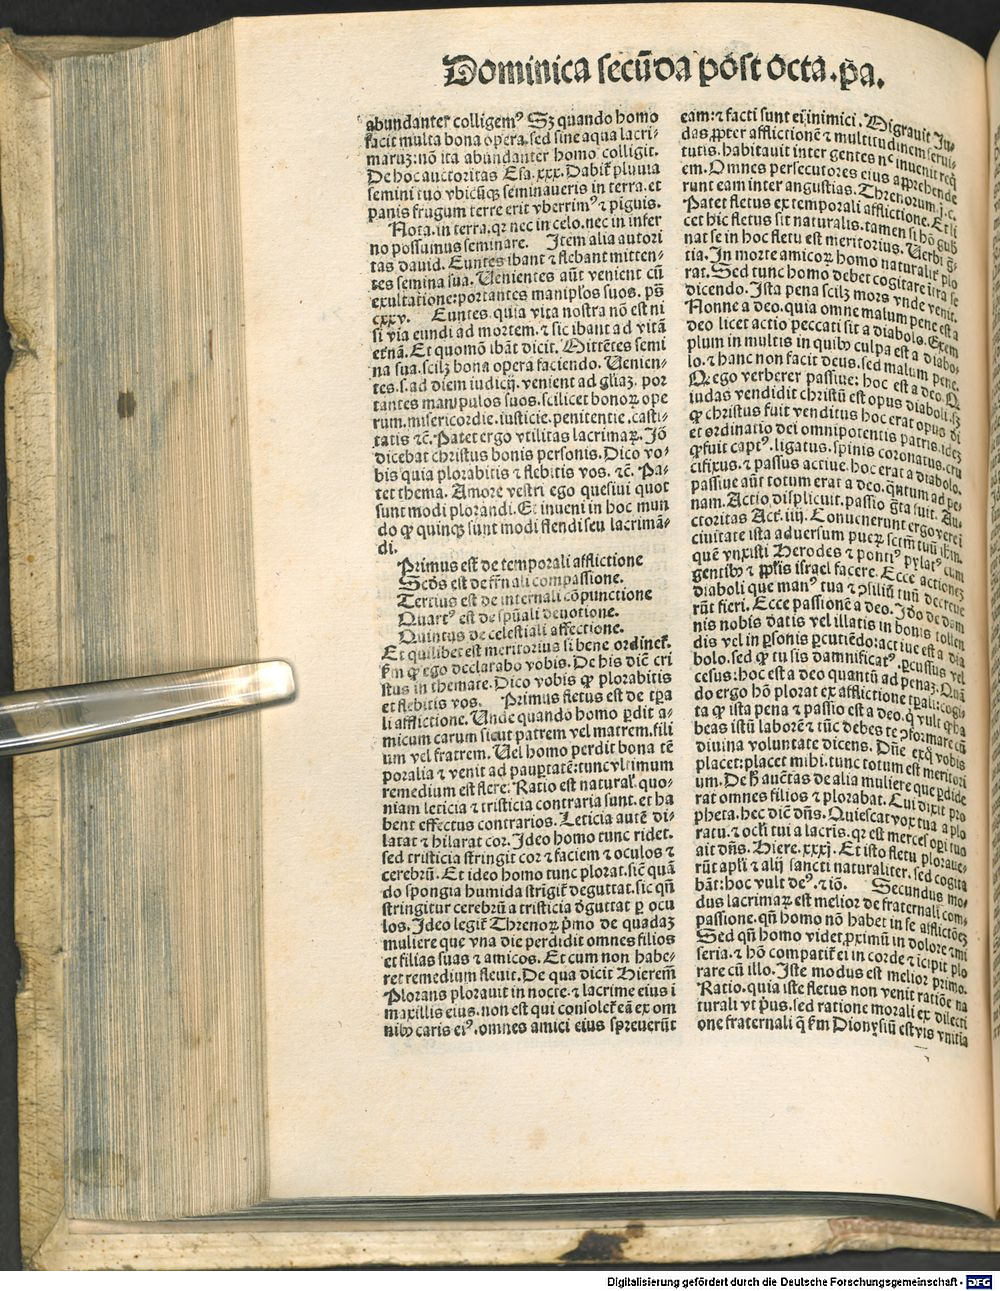 Dominica secūda post octa.pa.
abundanter colligemꝰ Sꝫ quando homo
facit multa bona opera.sed sine aqua lacri-
maruꝫ:nō ita abundanter homo colligit.
De hoc auctoritas Esa.xxx.Dabit̄ pluuia
semini tuo vbicūqꝫ seminaueris in terra.et
panis frugum terre erit vberrimꝰ ⁊ piguis.
Nota.in terra.qꝛ nec in celo.nec in infer
no possumus seminare. Item alia autori
tas dauid. Euntes ibant ⁊ flebant mitten-
tes semina sua. Uenientes aūt venient cū
exultatione:portantes manipłos suos. ps̄
cxxv. Euntes.quia vita nostra nō est ni
si via eundi ad mortem.⁊ sic ibant ad vitā
et̄nā. Et quomō ibāt dicit. Mittētes semi
na sua.scilꝫ bona opera faciendo. Uenien-
tes.s.ad diem iudicij.venient ad gl̄iaꝫ.por
tantes manipulos suos.scilicet bonoꝝ ope
rum.misericordie.iusticie.penitentie.casti-
tatis ⁊c̄. Patet ergo vtilitas lacrimaꝝ. Iō
dicebat christus bonis personis. Dico vo-
bis quia plorabitis ⁊ flebitis vos. ⁊c̄. Pa-
tet thema. Amore vestri ego quesiui quot
sunt modi plorandi. Et inueni in hoc mun
do ꝙ quinqꝫ sunt modi flendi seu lacrimā-
di.
Primus est de temporali afflictione
Scd̄s est de fr̄nali compassione.
Tertius est de internali cōpunctione
Quartꝰ est de spūali deuotione.
Quintus de celestiali affectione.
Et quilibet est meritorius si bene ordinet̄.
fm̄ ꝙ ego declarabo vobis. De his diē cri
stus in themate. Dico vobis ꝙ plorabitis
et flebitis vos. Primus fletus est de tp̄a
li afflictione. Unde quando homo ꝑdit a-
micum carum sicut patrem vel matrem.fili
um vel fratrem. Uel homo perdit bona tē
poralia ⁊ venit ad pauꝑtatē:tunc vltimum
remedium est flere. Ratio est natural̓. quo-
niam leticia ⁊ tristicia contraria sunt.et ha
bent effectus contrarios. Leticia autē di-
latat ⁊ hilarat cor. Ideo homo tunc ridet.
sed tristicia stringit cor ⁊ faciem ⁊ oculos ⁊
cerebrū. Et ideo homo tunc plorat.sic̄ quā
do spongia humida strīgit̄ deguttat.sic qn̄
stringitur cerebrū a tristicia d̓guttat ꝑ ocu
los. Ideo legit̄ Threnoꝝ p̓mo de quadaꝫ
muliere que vna die perdidit omnes filios
et filias suas ⁊ amicos. Et cum non habe-
ret remedium fleuit. De qua dicit Hierem̄
Plorans plorauit in nocte.⁊ lacrime eius ī
maxillis eius.non est qui consolet̄ eā ex om
nibꝰ caris eiꝰ.omnes amici eius spreuerūt
eam:⁊ facti sunt ei inimici. Migrauit Iu-
das ꝓpter afflictionē ⁊ multitudinem serui-
tutis.habitauit inter gentes nc̄ inuenit reqͥ
em. Omnes persecutores eius apprehende
runt eam inter angustias. Threnorum.j.c.
Patet fletus ex temporali afflictione. Et li
cet hic fletus sit naturalis.tamen si hō gub̄
nat se in hoc fletu est meritorius. Uerbi g̓-
tia. In morte amicoꝝ homo naturalit̄ plo
rat. Sed tunc homo debet cogitare īt̓ra se
dicendo. Ista pena scilꝫ mors vnde venit.
Nonne a deo.quia omne malum pene est a
deo licet actio peccati sit a diabolo. Exem
plum in multis in quibꝰ culpa est a diabo-
lo.⁊ hanc non facit deus.sed malum pene.
Qꝛ ego verberer passiue:hoc est a deo. Qꝛ
iudas vendidit christū est opus diaboli.sꝫ
ꝙ christus fuit venditus hoc erat opus di
et ordinatio dei omnipotentis patris.ideꝫ
ꝙ fuit captꝰ.ligatus.spinis coronatus.cru
cifixus.⁊ passus actiue.hoc erat a diabolo.
passiue aūt totum erat a deo.qͣntum ad pe-
nam. Actio displicuit.passio gͣta fuit. Au-
ctoritas Act̄.iiij. Conuenerunt ergo vere ī
ciuitate ista aduersum pueꝝ sctm̄ tuū ih̄m.
quē vnxisti Herodes ⁊ pontiꝰ pylatꝰ cum
gentibꝰ ⁊ ppl̓is israel facere. Ecce actioneꝫ
diaboli que manꝰ tua ⁊ ↄ̄siliū tuū decreue
rūt fieri. Ecce passionē a deo. Iō de dam
nis nobis datis vel illatis in bonis tollen
dis vel in ꝑsonis ꝑcutiēdo:actiue est a dia
bolo.sed ꝙ tu sis damnificatꝰ.ꝑcussus vel
cesus:hoc est a deo quantū ad penaꝫ. Quā
do ergo hō plorat ex afflictione tp̄ali:cogi-
ta ꝙ ista pena ⁊ passio est a deo.q̓ vult ꝙ ha
beas istū laborē ⁊ tūc debes te ↄ̄formare cū
diuina voluntate dicens. Dn̄e exqͦ vobis
placet:placet mihi.tunc totum est meritori
um. De h̓ auct̄as de alia muliere que ꝑdide
rat omnes filios ⁊ plorabat. Cui dixit pro
pheta.hec dic̄ dn̄s. Quiescat vox tua a plo
ratu.⁊ ocl̓i tui a lacris.qꝛ est merces op̄i tuo
ait dn̄s. Hiere.xxxj. Et isto fletu ploraue-
rūt apl̓i ⁊ alij sancti naturaliter.sed cogita
bāt:hoc vult deꝰ.⁊ iō. Secundus mo-
dus lacrimaꝝ est melior de fraternali com-
passione.qn̄ homo nō habet in se afflictōeꝫ
Sed qn̄ homo videt ꝓximū in dolore ⁊ mi
seria.⁊ hō compatit̄ ei in corde ⁊ īcipit plo
rare cū illo. Iste modus est melior primo.
Ratio.quia iste fletus non venit ratiōe na
turali vt p̓us.sed ratione morali ex dilecti
one fraternali q̄ fm̄ Dionysiū est vis vnitia
Digitalisierung gefördert durch die Deutsche Forschungsgemeinschaft - DFG